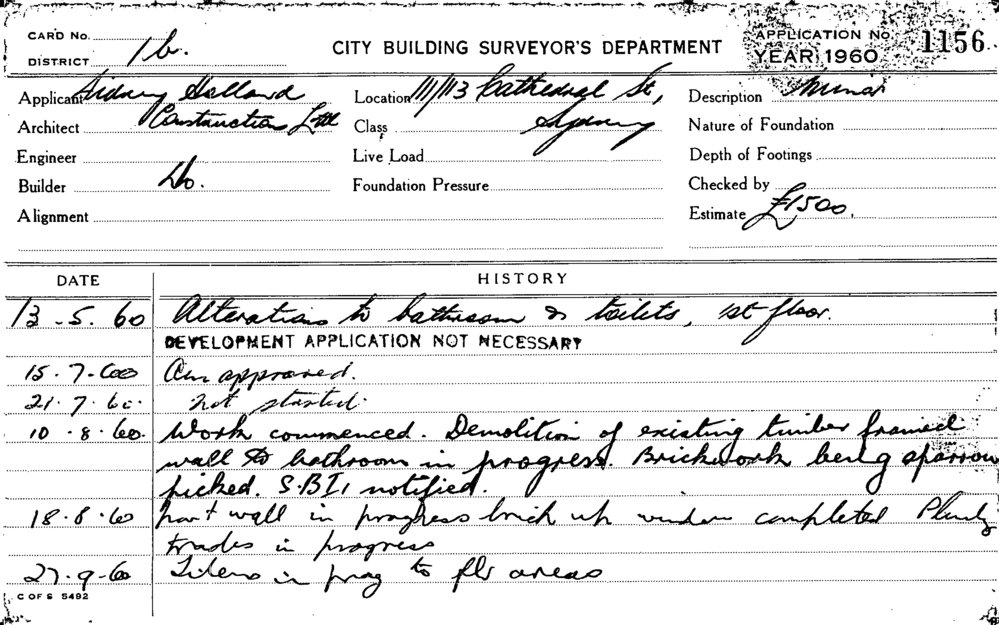 CARD No.
DISTRICT 1b.
CITY BUILDING SURVEYOR'S DEPARTMENT
APPLICATION No. 1156
YEAR 1960
Applicant Sidney Holland
Construction Ltd
Location 111/113 Cathedral St,
Sydney
Description Minor
Architect
Class
Nature of Foundation
Engineer
Live Load
Depth of Footings
Builder Do.
Foundation Pressure
Checked by
Alignment
Estimate £1500.
DATE HISTORY
13.5.60 Alterations to bathroom & toilets, 1st floor.
DEVELOPMENT APPLICATION NOT NECESSARY
15.7.60 approved.
21.7.60 Not started.
10.8.60. Work commenced. Demolition of existing timber framed
wall to bathroom in progress. Brickwork being sparrow
picked. S.B.I. notified.
18.8.60 part wall in progress brick up window completed
trades in progress
27.9.60 Tilers in prog to flr areas
C OF S 5492